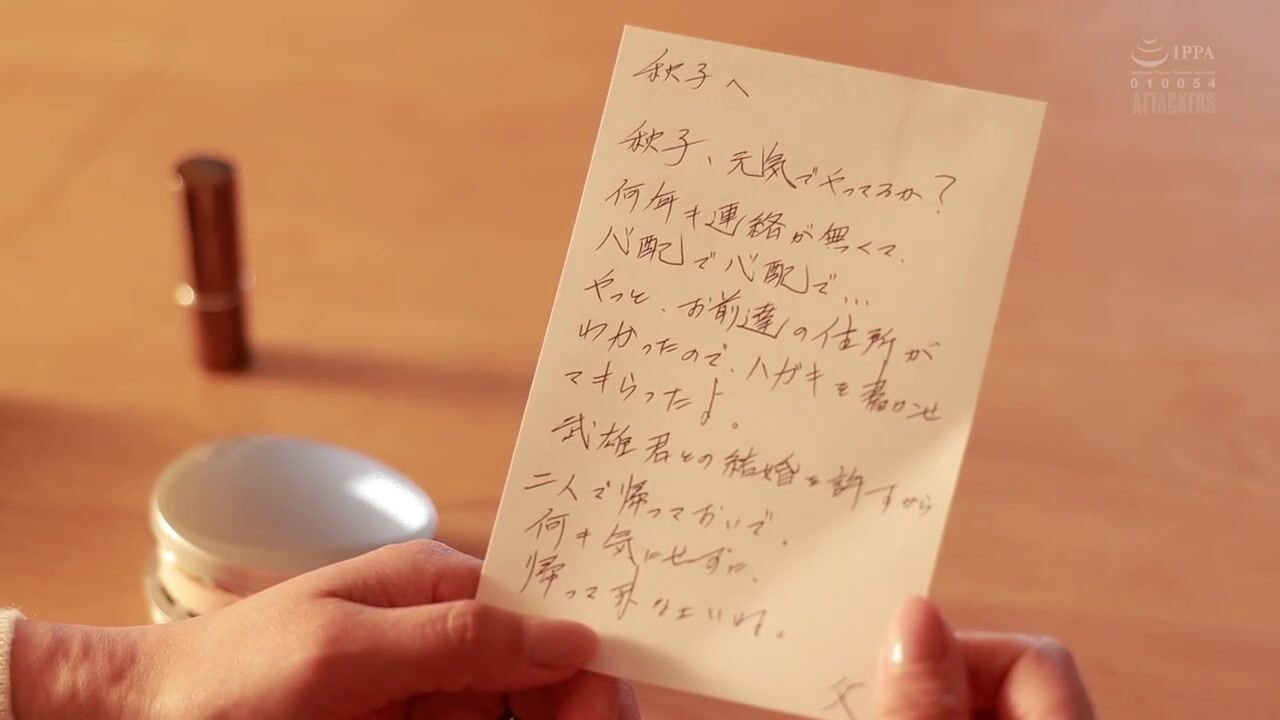 秋子へ
秋子、元気でやってるか?
何年も連絡が無くて、
心配で心配で…
やっと、お前達の住所が
わかったので、ハガキを書かせ
てもらったよ。
武雄君との結婚を許すから
二人で帰っておいで。
何も気にせずに、
帰って来なさいね。
父
IPPA
010054
ATTACKERS